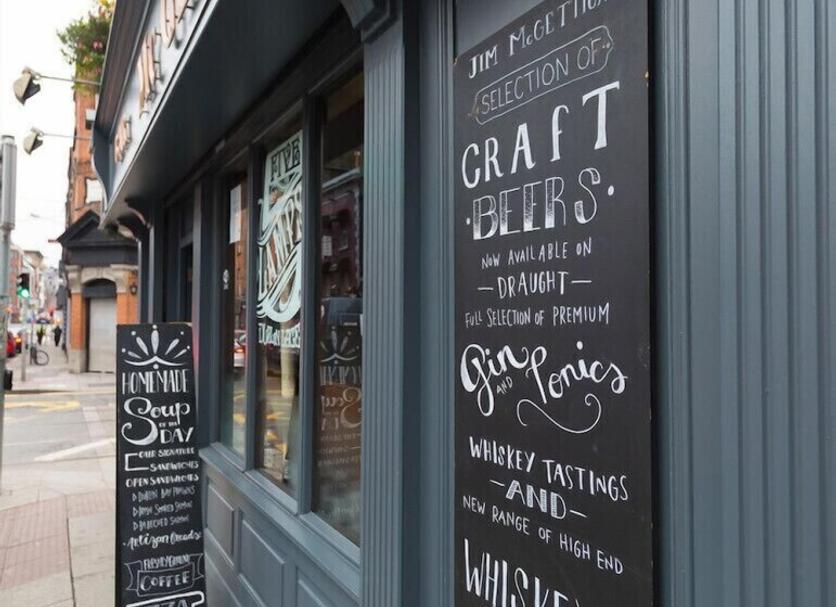 FIVE
LAMPS
HOMEMADE
Soup
OF THE
DAY
OUR SIGNATURE
SANDWICHES
OPEN SANDWICHES
DUBLIN BAY PRAWNS
IRISH SMOKED SALMON
POACHED SALMON
Artisan Breads
FRESHLY GROUND
COFFEE
JIM McGETTIGAN
SELECTION OF
CRAfT
·BEERS·
NOW AVAILABLE ON
—DRAUGHT—
FULL SELECTION OF PREMIUM
Gin AND Tonics
WHISKEY TASTINGS
—AND—
NEW RANGE OF HIGH END
WHISKE